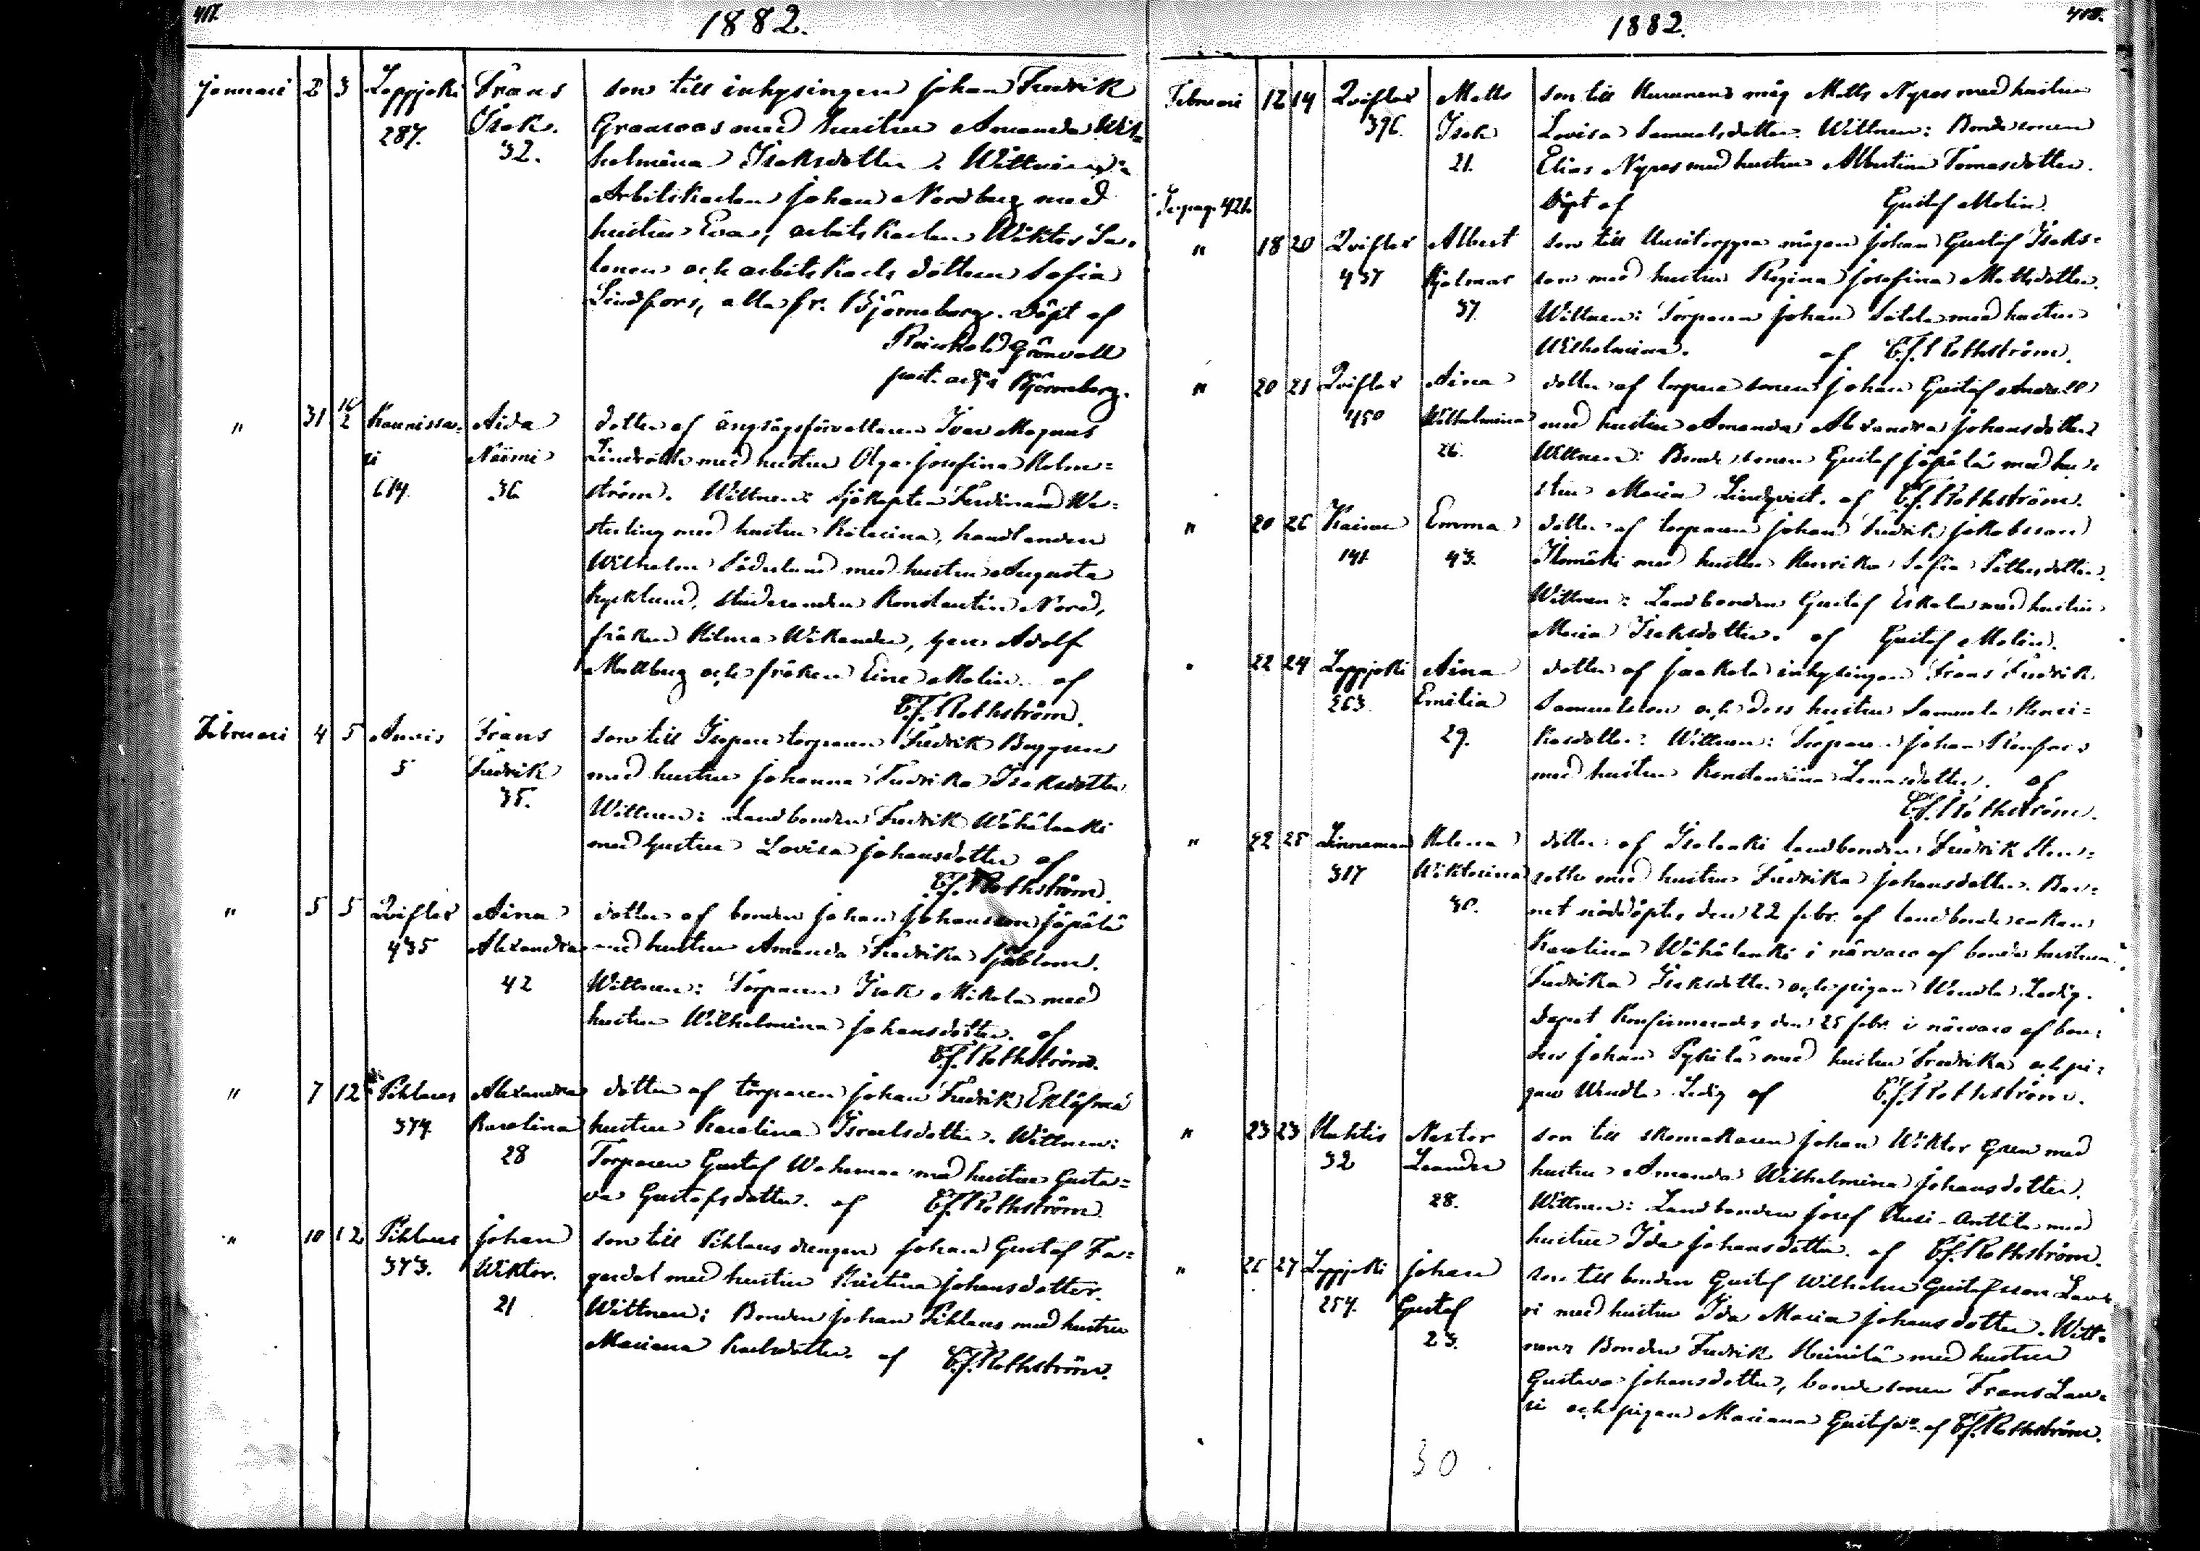 417.
1882.
Januari 2 3 Lappjoki Frans son till inhysingen Johan Fredrik
287. Isak. med hustru Amanda Wil=
32. helmina Isaksdotter. Wittnen:
Arbetskarlen Johan Nordberg med
hustru Eva, arbetskarlen Wiktor Sa=
lonen och arbetskarls dottern Sofia
Lindfors, alla fr. Björneborg. Döpt af
Reinhold Grönvall
past. adj. i Björneborg.
" 31 16/2 Kaunissa= Aida dotter af ångsågsförvaltaren Ivar Magnus
ri Naimi med hustru Olga Josefina Holm=
614. 36 ström. Wittnen: Sjökapten Ferdinand We=
sterling med hustru Katarina, handlanden
Wilhelm Söderlund med hustru Augusta
studeranden Konstantin Nord,
fröken Hilma Wikander, herr Adolf
Mollberg och fröken Eine Molin. af
C.J. Rothström.
Februari 4 5 Auvis Frans son till torparen Fredrik
5 Fredrik med hustru Johanna Fredrika Isaksdotter.
35. Wittnen: Landbonden Fredrik Wähälaski
med hustru Lovisa Johansdotter af
C.J. Rothström.
" 5 5 Qviflax Aina dotter af bonden Johan Johansson Jäpälä
435 Alexandra med hustru Amanda Fredrika Sjöblom.
42 Wittnen: Torparen Isak Mikola med
hustru Wilhelmina Johansdotter. af
C.J. Rothström.
" 7 12 Pihlaus Alexandra dotter af torparen Johan Fredrik Eklöf med
377. Karolina hustru Karolina Israelsdotter. Wittnen:
28 Torparen Gustaf med hustru Gusta=
va Gustafsdotter. af C.J. Rothström.
" 10 12 Pihlaus Johan son till Pihlaus drengen Johan Gustaf Fa=
373. Wiktor. gerdal med hustru Kristina Johansdotter.
21 Wittnen: Bonden Johan Pihlaus med hustru
Mariana Karlsdotter. af C.J. Rothström.
418.
1882.
Februari 12 14 Qviflax Matts son till måg Matts Nyroos med hustru
396. Isak Lovisa Samuelsdotter. Wittnen: Bonde sonen
21. Elias Nyroos med hustru Albertina Tomasdotter.
pag. 421. Döpt af Gustaf Molin.
" 18 20 Qviflax Albert son till mågen Johan Gustaf Isaks=
437 Hjalmar son med hustru Regina Josefina Mattsdotter.
37. Wittnen: Torparen Johan med hustru
Wilhelmina. af C.J. Rothström.
" 20 21 Qviflax Aina dotter af torpare sonen Johan Gustaf Andell
450 Wilhelmina med hustru Amanda Alexandra Johansdotter
26. Wittnen: Bonde sonen Gustaf Jäpälä med hu=
stru Maria Lindqvist. af C.J. Rothström.
" 20 26 Kainu Emma dotter af torparen Johan Fredrik Jakobsson
141 43. Ilomäki med hustru Henrika Sofia
Wittnen: Landbonden Gustaf Eskola med hustru
Maria Isaksdotter. af Gustaf Molin.
" 22 24 Lappjoki Aina dotter af Jaakola inhysingen Frans Fredrik
263. Emilia Samuelsson och dess hustru Samuela Henri=
29. Wittnen: Torpare Johan Renfors
med hustru Konstantina af
C.J. Rothström.
" 22 25 Linnamaa Helena dotter af Isolaski landbonden Fredrik Sten=
317 Wiktorina med hustru Fredrika Johansdotter. Bar=
30. net nöddöptes den 22 febr. af landbonde enkan
Karolina Wähälaski i närvaro af bonde hustrun
Fredrika Isaksdotter och pigan Wendla Ledig.
Dopet konfirmerades den 25 febr. i närvaro af bon=
den Johan Pyhitä med hustru Fredrika och pi=
gan Wendla Ledig af C.J. Rothström.
" 23 23 Huhtis Nestor son till skomakaren Johan Wiktor Gren med
32 Leander hustru Amanda Wilhelmina Johansdotter.
28. Wittnen: Landbonden Josef Uusi-Anttila med
hustru Ida Johansdotter. af C.J. Rothström.
" 25 27 Lappjoki Johan son till bonden Gustaf Wilhelm Gustafsson Lau=
254. Gustaf ri med hustru Ida Maria Johansdotter. Witt=
23. nen: Bonden Fredrik Heinilä med hustru
Gustava Johansdotter, bonde sonen Frans Lau=
ri och pigan Mariana Gustafsdr af C.J. Rothström.
30